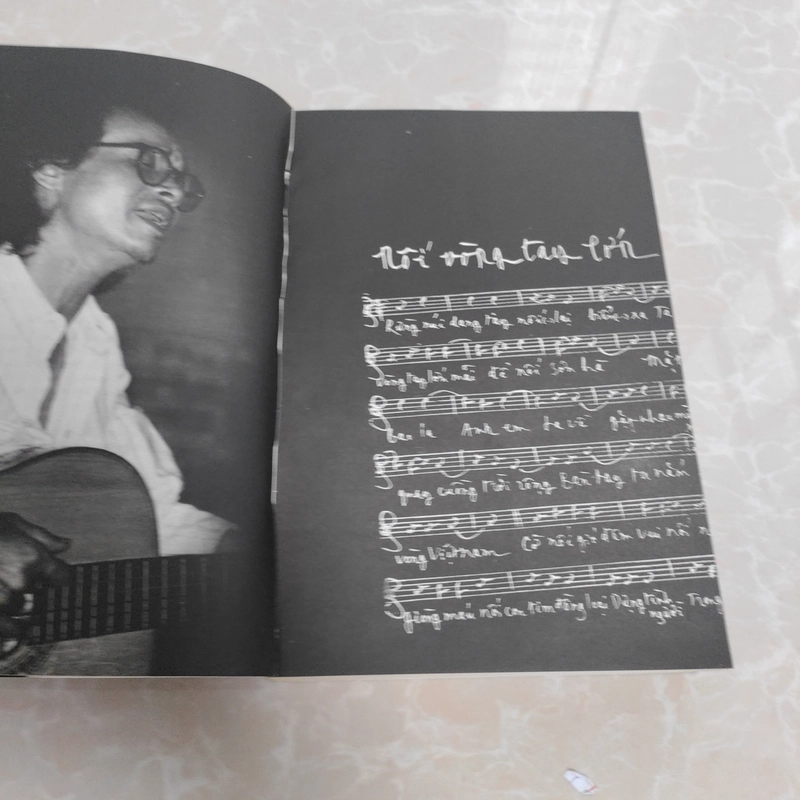 Nối vòng tay lớn
Rừng núi dang tay nối lại biển xa Ta
vòng tay lớn mãi để nối sơn hà Mặt
bao la Anh em ta về gặp nhau
quay cuồng trời rộng bàn tay ta nắm
vòng Việt Nam Cờ nối gió đêm vui nối
giòng máu nối con tim đồng loại Dựng tình người Trong